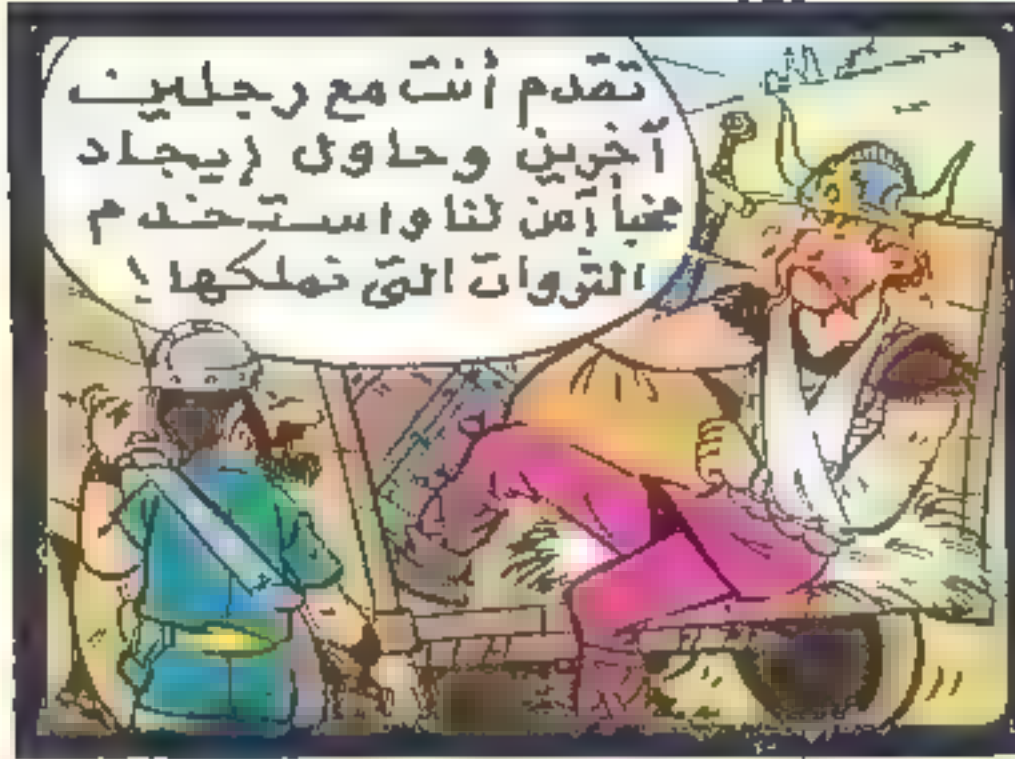 تقدم أنت مع رجلين
آخرين وحاول إيجاد
مخبأ آمن لنا واستخدم
الثروات التي نملكها !